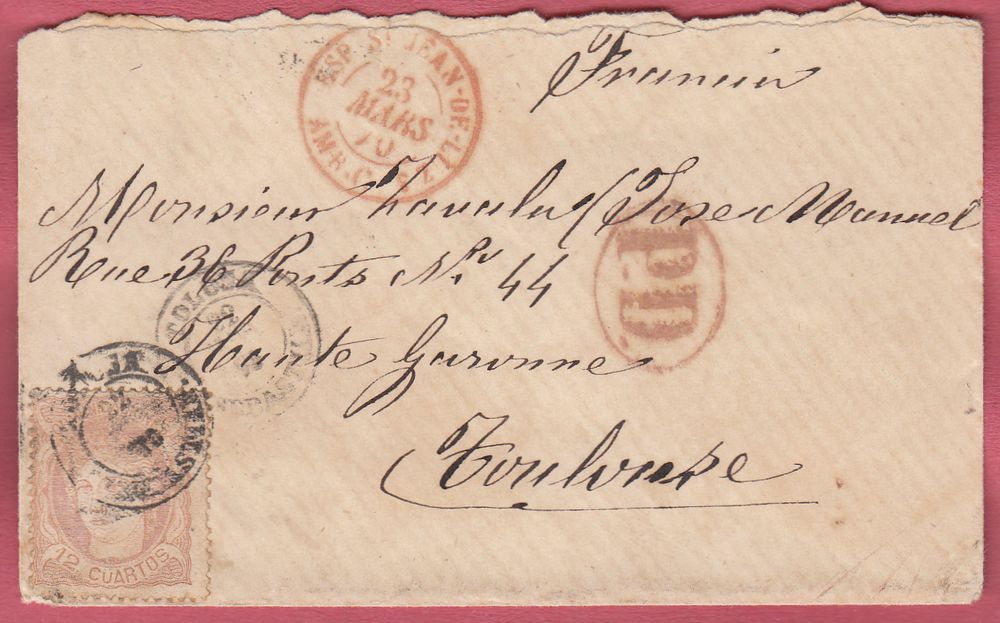 ESP. St JEAN-DE-LZ
23
MARS
70
AMB. C
Francia
Monsieur Zavala / Jose Manuel
Rue 36 Ponts Nr 44
Haute Garonne
Toulouse
PD
TOLOSA
12 CUARTOS